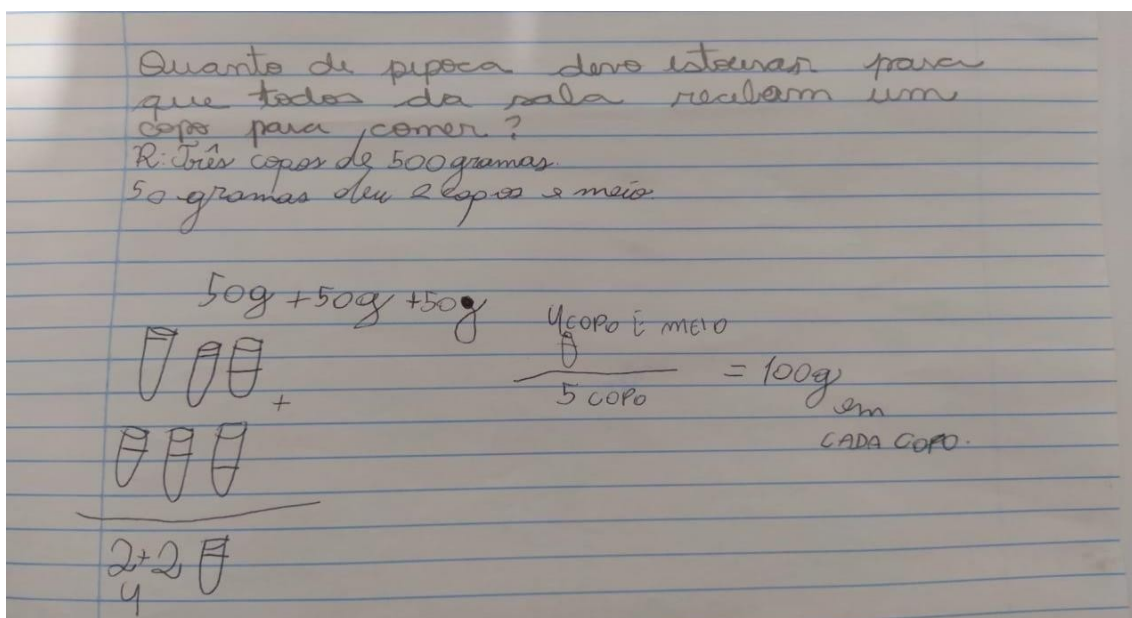 Quanto de pipoca devo estourar para
que todos da sala recebam um
copo para comer?
R: Três copos de 500 gramas.
50 gramas deu 2 copos e meio.
50g + 50g + 50g
4 COPO E MEIO
5 COPO
= 100g
em
CADA COPO.
+
2+2
4